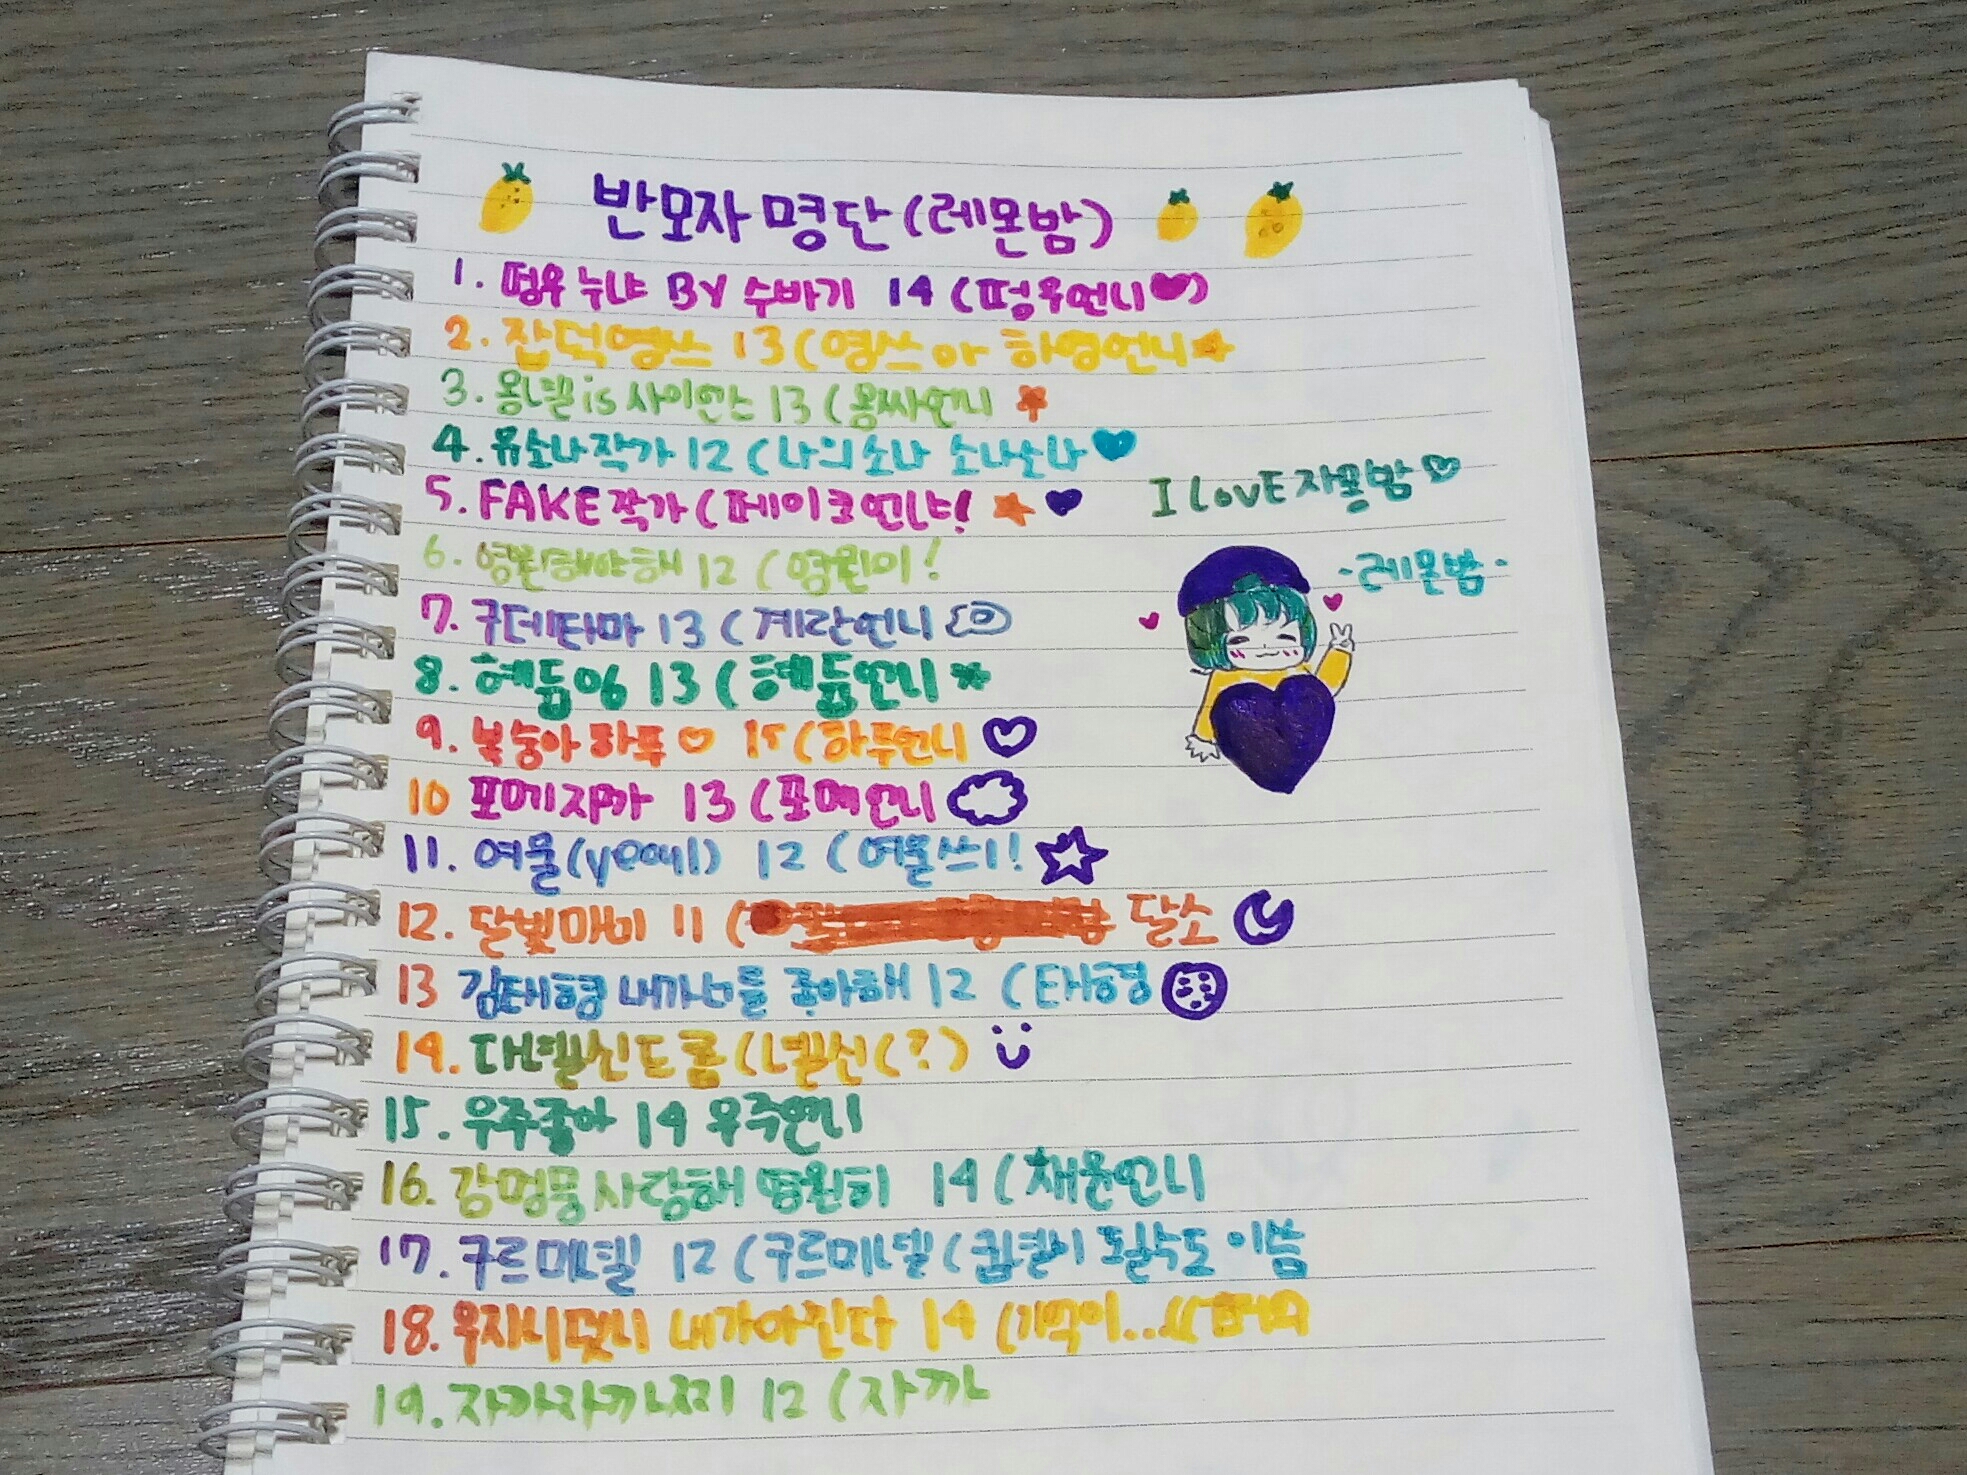 반모자 명단 (레몬밤)
1. 떵우 누냐 BY 수바기 14 (떵우언니
2. 잡덕영쓰 13 (영쓰 아 하영언니
3. 옹녤 is 사이언스 13 (옹싸언니
4. 유소나작가 12 (나의소나 소나소나
5. FAKE작가 (페이크언냐!
I LOVE 자몽밤
6. 영원해야해 12 (영원이!
-레몬밤-
7. 구데타마 13 (계란언니
8. 헤듐06 13 (헤듐언니
9. 복숭아하루 15 (하루언니
10 포메자까 13 (포메언니
11. 여울(yeoul) 12 (여울쓰!
12. 달빛매비 11 ( 달소
13 김태형 내가너를 좋아해 12 (태형
14. 대녤신드롬 (녤신(?)
15. 우주좋아 14 우주언니
16. 강명뭉 사랑해 영원히 14 (채윤언니
17. 구르미녤 12 (구르미녤 ( 이씀
18. 우지니덧니 내가아낀다 14
19. 자까자까 12 (자까